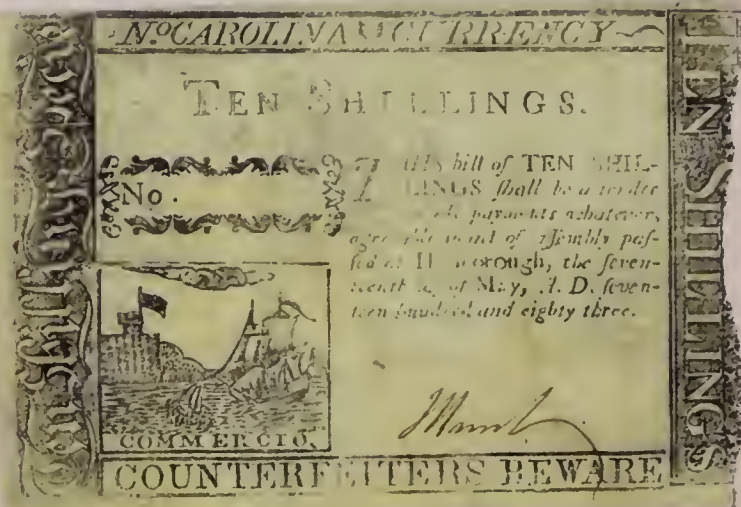 No CAROLINA CURRENCY
TEN SHILLINGS.
No.
THIS bill of TEN SHIL-
LINGS ſhall be a tender
payments whatever,
agreeable to act of Aſſembly paſ-
ſed at Hillſborough, the ſeven-
teenth day of May, A. D. ſeven-
teen hundred and eighty three.
COMMERCIO.
COUNTERFEITERS BEWARE
TEN SHILLING